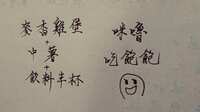 麥香雞堡
+
中薯
+
飲料半杯
咪嚕
吃飽飽